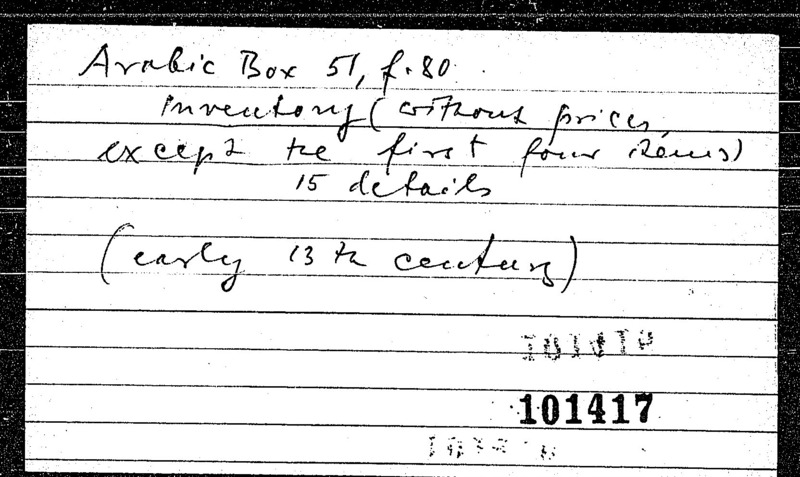 Arabic Box 51, f. 80.
Inventory (without prices,
except the first four items)
15 details
(early 13th century)
101417